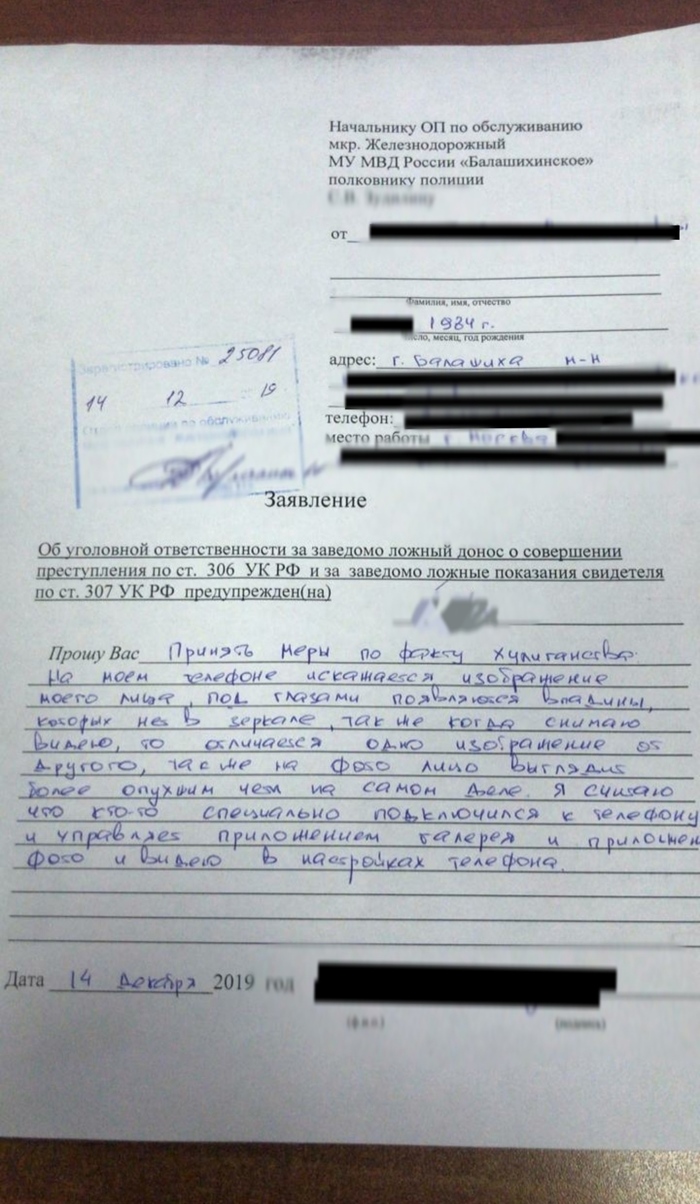 Начальнику ОП по обслуживанию
мкр. Железнодорожный
МУ МВД России «Балашихинское»
полковнику полиции
от
Фамилия, имя, отчество
1984 г.
число, месяц, год рождения
адрес: г. Балашиха м-н
телефон:
место работы г. Москва
Зарегистрировано № 25081
14 12 19
Отдел полиции по обслуживанию
Заявление
Об уголовной ответственности за заведомо ложный донос о совершении
преступления по ст. 306 УК РФ и за заведомо ложные показания свидетеля
по ст. 307 УК РФ предупрежден(на)
Прошу Вас Принять меры по факту хулиганства.
На моем телефоне искажается изображение
моего лица, под глазами появляются впадины,
которых нет в зеркале, так же когда снимаю
видео, то отличается одно изображение от
другого, так же на фото лицо выглядит
более опухшим чем на самом деле. Я считаю
что кто-то специально подключился к телефону
и управляет приложением галерея и приложен
фото и видео в настройках телефона.
Дата 14 декабря 2019 год
(ф.и.о) (подпись)